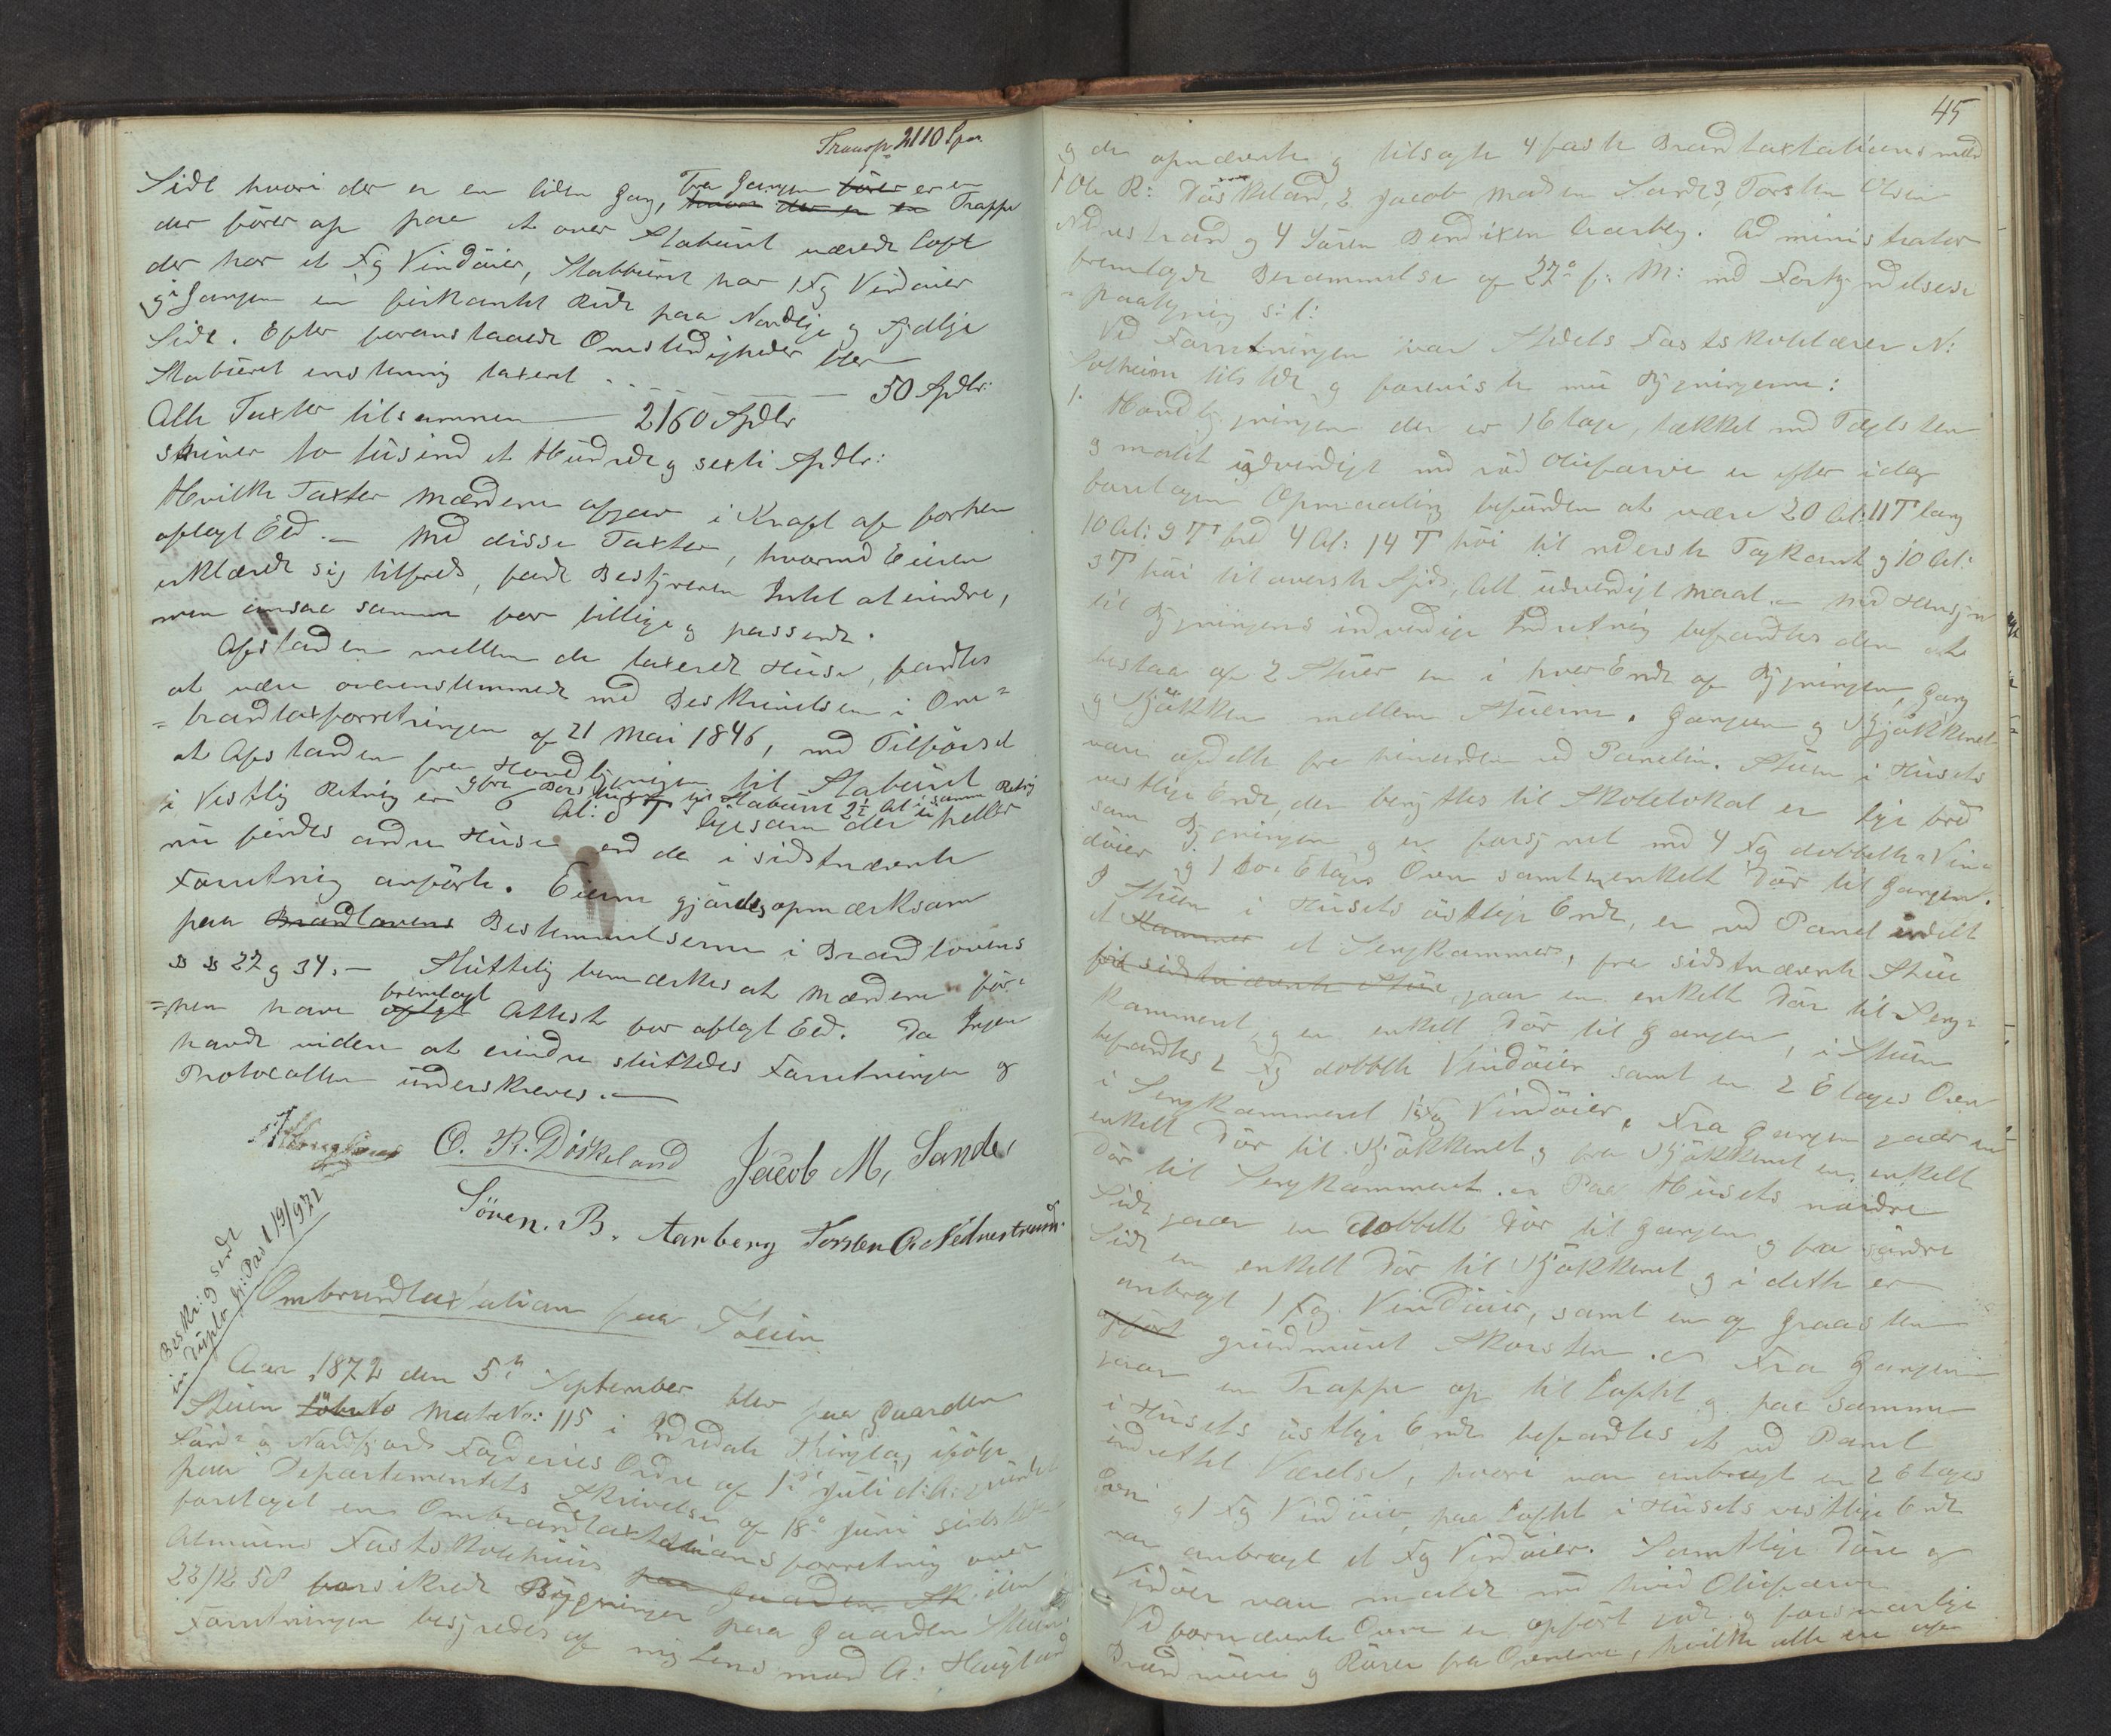 Transp. 2110 Spd.
Side hvori der er en liden Gang, Fra Gangen fører er en
hvor der er en Trappe
der fører op paa et over Stabüret værende Loft
der har et Fag Vindöier, Stabbüret har 1 Fag Vindöier
og i Gangen en firkantet Rude paa Nordlige og Sydlige
Side. Efter foranstaaende Omstændigheder blev
Stabüret enstemmig taxeret - - - - 50 Spdlr:
Alle Taxter tilsammen — 2160 Spdlr
skriver to tüsind et Hündrede og sexti Spdlr:
Hvilke Taxter Mændene afgav i Kraft af forhen
aflagt Eed. — Med disse Taxter, hvormed Eieren
erklærede sig tilfreds, fandt Bestyreren Intet at erindre,
men ansaa samme for billige og passende.
Afstanden mellem de taxerede Hüse, fandtes
at være overensstemmende med Beskrivelsen i Om=
=brandtaxtforretningen af 21 Mai 1846, med Tilförsel
at Afstanden fra Hovedbygningen til Stabüret
i Vestlig Retning er 6 Al: 8 T og fra til Stabüret 2½ Al i samme Retng
ligesom der ei heller
nu findes andre Hüse end de i sidstnævnte
Forretning anförte. Eieren gjordes opmærksom
paa Brandlovens Bestemmelserne i Brandlovens
§§ 27 og 34. — Slüttelig bemærkes at Mændene för=
=hen have aflagt fremlagt Attest for aflagt Eed. Da Ingen
havde videre at erindre sluttedes Forretningen og
Protocollen ünderskreves. —
O. R. Döskeland Jacob M, Sande
Sören. B. Aarberg Torsten O Nedrestrand
Beskr: og sendt
in duplo pr: Post 19/9 72
Ombrandtaxtation paa Steien
Aar 1872 den 5te September blev paa Gaarden
Steien Löbe No Matr No: 115 i Indredale Thinglag, ifölge
Sönd- og Nordfjords Fogderies Ordre af 1ste Juli d: A: grundet
paa Departementets Skrivelse af 18de Juni sidstl.
foretaget en Ombrandtaxtations forretning over
Almuens Fastskolehuus paa Gaarden St. den
22/12 58 forsikrede Bygninger paa Gaarden Steien
Forretningen bestyredes af mig Lensmand A: Hauglund
45
og de opnævnte og tilsagte 4 faste Brandtaxtations mænd
1 Ole R: Döskeland, 2 Jacob Madsen Sande 3, Torsten Olsen
Nedrestrand og 4 Sören Bendixen Aarberg. Administrator
fremlagde Berammelse af 27de f: M: med Forkyndelses
-paategning s: l:
Ved Forretningen var Stedets Fastskolelærer N:
Solheim tilstede og foreviste mü Bygningerne:
1. Hovedbygningen der er 1 Etage, tækket med Taglsten
og malet üdvendigt med röd Oliefarve er efter idag
foretagen Opmaaling befunden at være 20 Al: 11 T lang
10 Al: 9 T bred 4 Al: 14 T höi til nederste Tagkant og 10 Al:
3 T höi til överste Spids, Alt üdvendigt Maal. — Med Hensyn
til Bygningens indvendige Indretning befandtes den at
bestaa af 2 Stüer en i hver Ende af Bygningen, Gang
og Kjökken mellem Stüerne. Gangen og Kjökkenet
var afdelte fra hinanden ved Paneling. Stüen i Hüsets
vestlige Ende, der benyttes til Skolelokal er lige bred
som Bygningen og er forsynet med 4 Fag dobbelte Vin=
döier og 1 to Etages Oven samt en enkelt Dör til Gangen.
I Stüen i Hüsets östlige Ende, er ved Panel indelt
et Kammer et Sengkammer, fra sidstnævnte Stüe
fra sidstnævnte Stüe gaar en enkelt Dör til Seng=
kammeret og en enkelt Dör til Gangen, i Stüen
befandtes 2 Fag dobbelte Vindöier samt en 2 Etages Oven
i Sengkammeret 1 Fag Vindöier. Fra Gangen gaar en
enkelt Dör til Kjökkenet og fra Kjökkenet en enkelt
Dör til Sengkammeret. Paa Hüsets nordre
Side gaar en dobbelt Dör til Gangen og fra söndre
Side en enkelt Dör til Kjökkenet og i dette er
anbragt 1 Fag Vindöier, samt en af Graasten
opfört grundmuret Skorsten. Fra Gangen
gaar en Trappe op til Loftet og paa samme
i Hüsets östlige Ende befandtes et ved Panel
indrettet Værelse, hvori var anbragt en 2 Etages
Oven og 1 Fag Vindöier, paa Loftet i Hüsets vestlige Ende
var anbragt et Fag Vindöier. Samtlige Döre og
Vindöier vare malede med hvid Oliefarve
Ved fornævnte Ovne er opfört gode og forsvarlige
Brandmüre og Rörer fra Ovnene, hvilke alle ere af